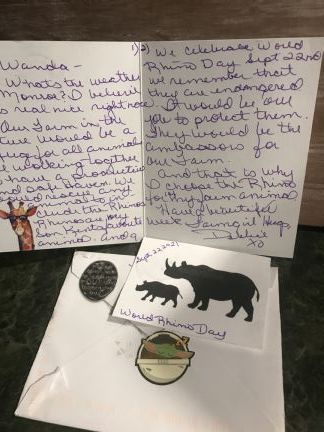 Wanda -
What's the weather
Monroe? I believe
is real nice right now.
Our Farm in the
would be a
for all animals
working together
have a productive
and safe haven. We
would rescue
animal to
include the Rhino.
Rhinos
son Kent's favorite
animal. and 9
1) 2) We celebrate World
Rhino Day Sept 22nd
we remember that
they are endangered
It would be our
to protect them.
They would be the
ambassadors for
our Farm.
And that is why
I choose the Rhino
for my farm animal.
Have a beautiful
week Farmgirl Hugs,
Debbie
XO
Sept 22 2021
World Rhino Day